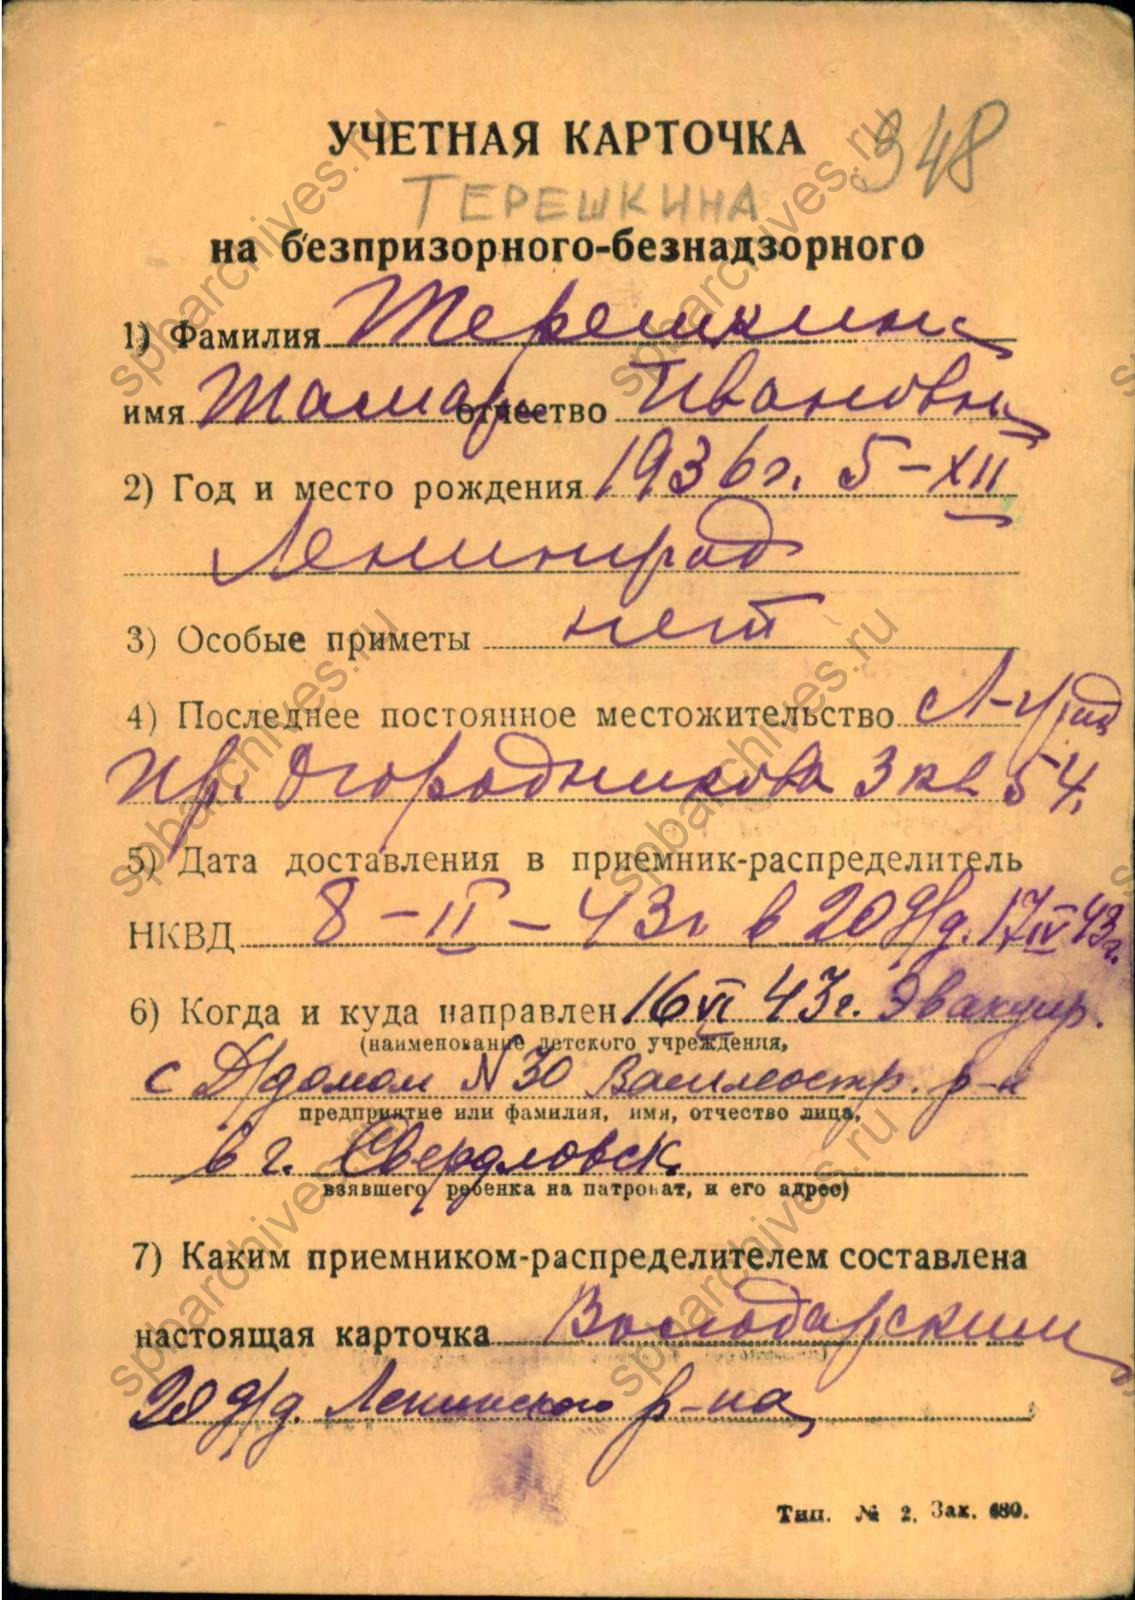 УЧЕТНАЯ КАРТОЧКА
348
ТЕРЕШКИНА
на безпризорного-безнадзорного
1) Фамилия Терешкина
имя Тамара отчество Ивановна
2) Год и место рождения 1936г. 5-XII
Ленинград
3) Особые приметы нет
4) Последнее постоянное местожительство Л-град
Пр. Огородникова 3 кв 54.
5) Дата доставления в приемник-распределитель
НКВД 8-II-43г в 20 д/д. 17 IV 43г.
6) Когда и куда направлен 16 VI 43г. Эвакуир.
(наименование детского учреждения,
с Д/домом N 30 Василеостр. р-на
предприятие или фамилия, имя, отчество лица,
в г. Свердловск.
взявшего ребенка на патронат, и его адрес)
7) Каким приемником-распределителем составлена
настоящая карточка Володарским
20 д/д. Ленинского р-на
Тип. № 2. Зак. 680.
spbarchives.ru